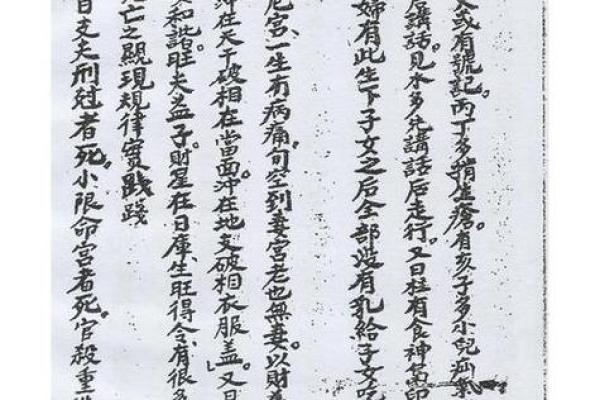 又或有號記。丙丁多揹生瘡。有亥子多小兒疝氣
后講話。見水多先講話后走行。又日柱有食神偏印
婦有此生下子女之后全部没有乳給子女吃
厄宫、一生有病痛。旬空到妻宫老也無妻。以財為
冲在天干破相在當面。冲在地支破相衣服盖。」又日
女和諧旺夫益子。財星在日庫、生旺得令、有很多
死亡之顯現規律實践踐
日支夫刑尅者死。小限命宫者死。官殺重